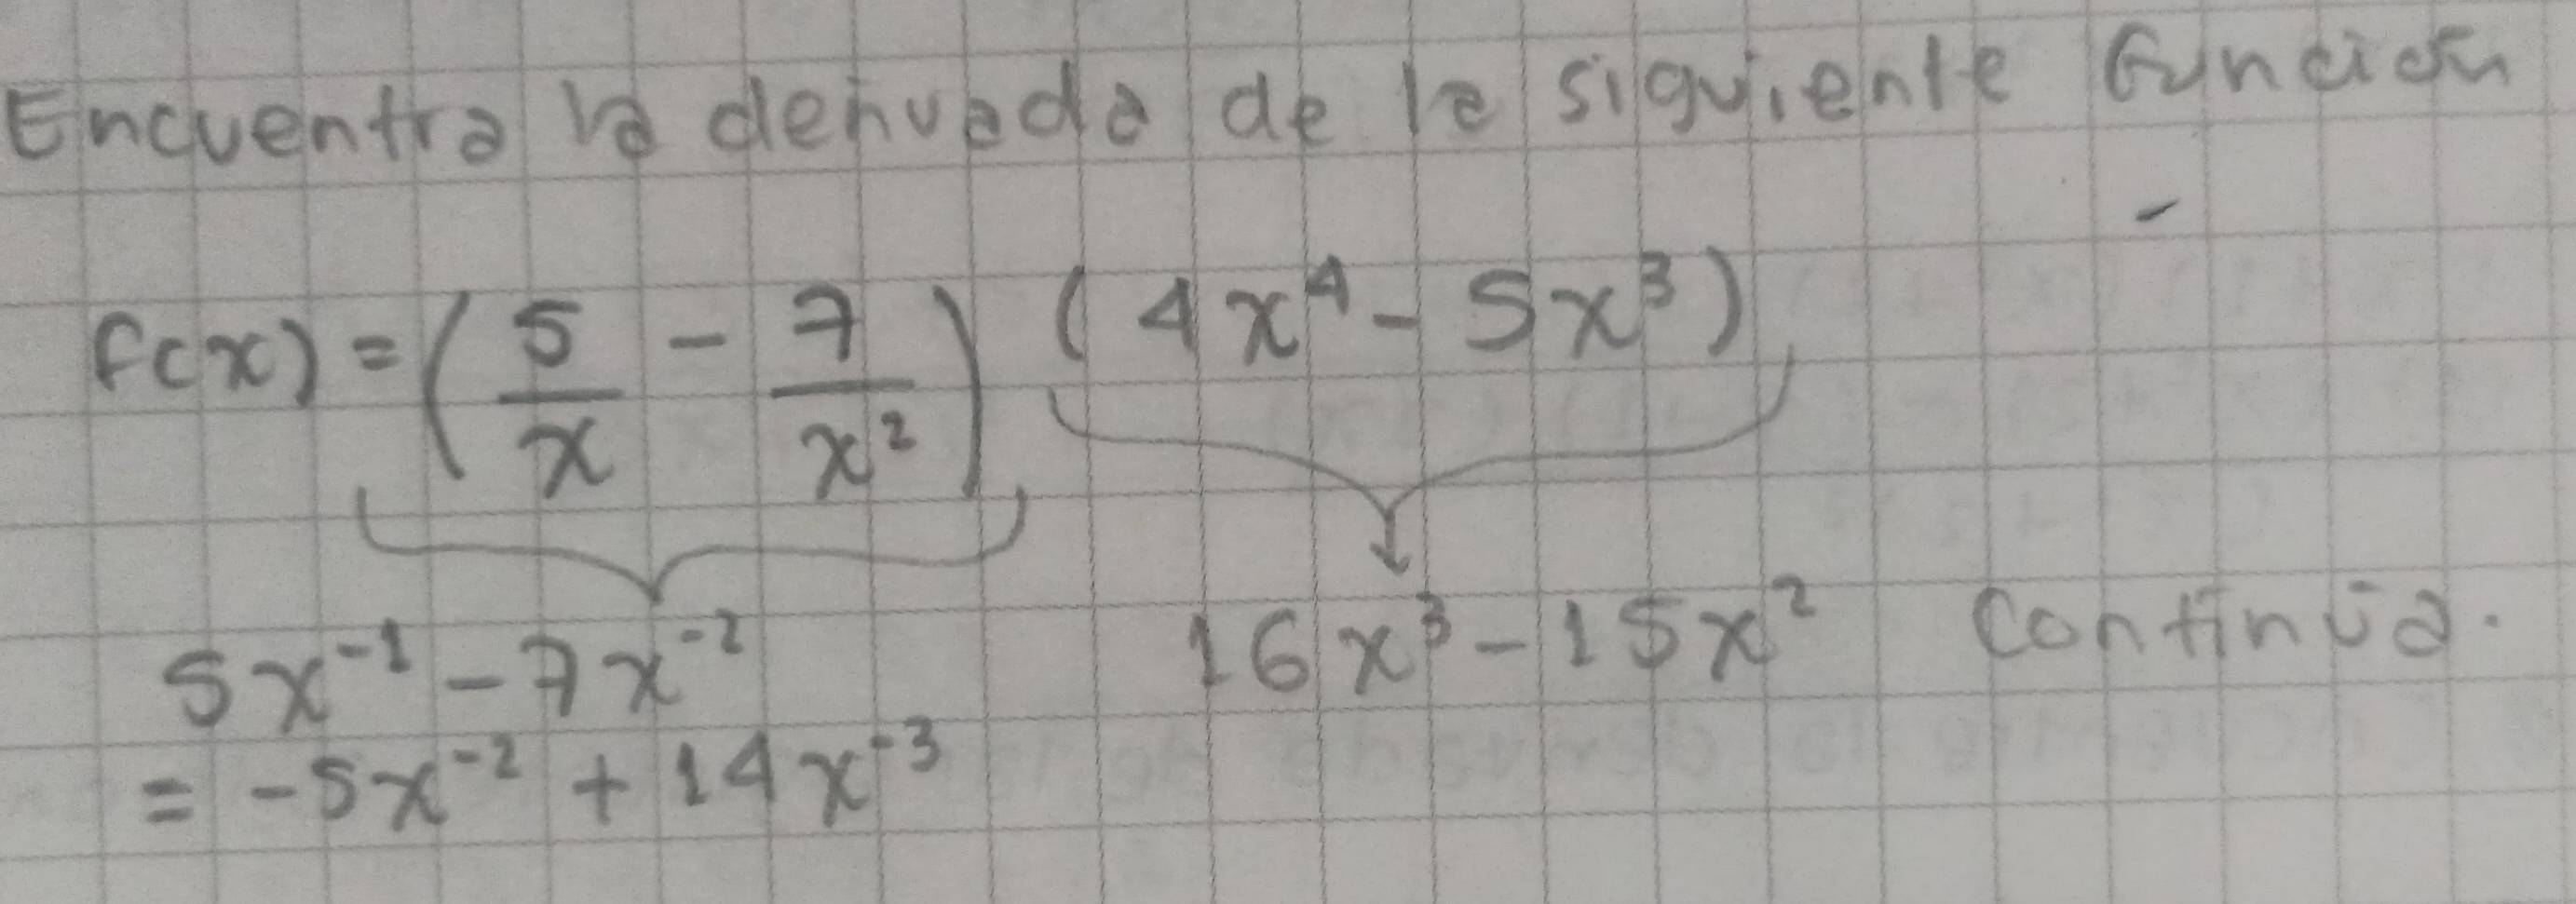 Encuentra la derivada de la siguiente función
f(x) = (5/x - 7/x²) (4x⁴ - 5x³)
5x⁻¹ - 7x⁻² 16x³ - 15x² continúa.
= -5x⁻² + 14x⁻³